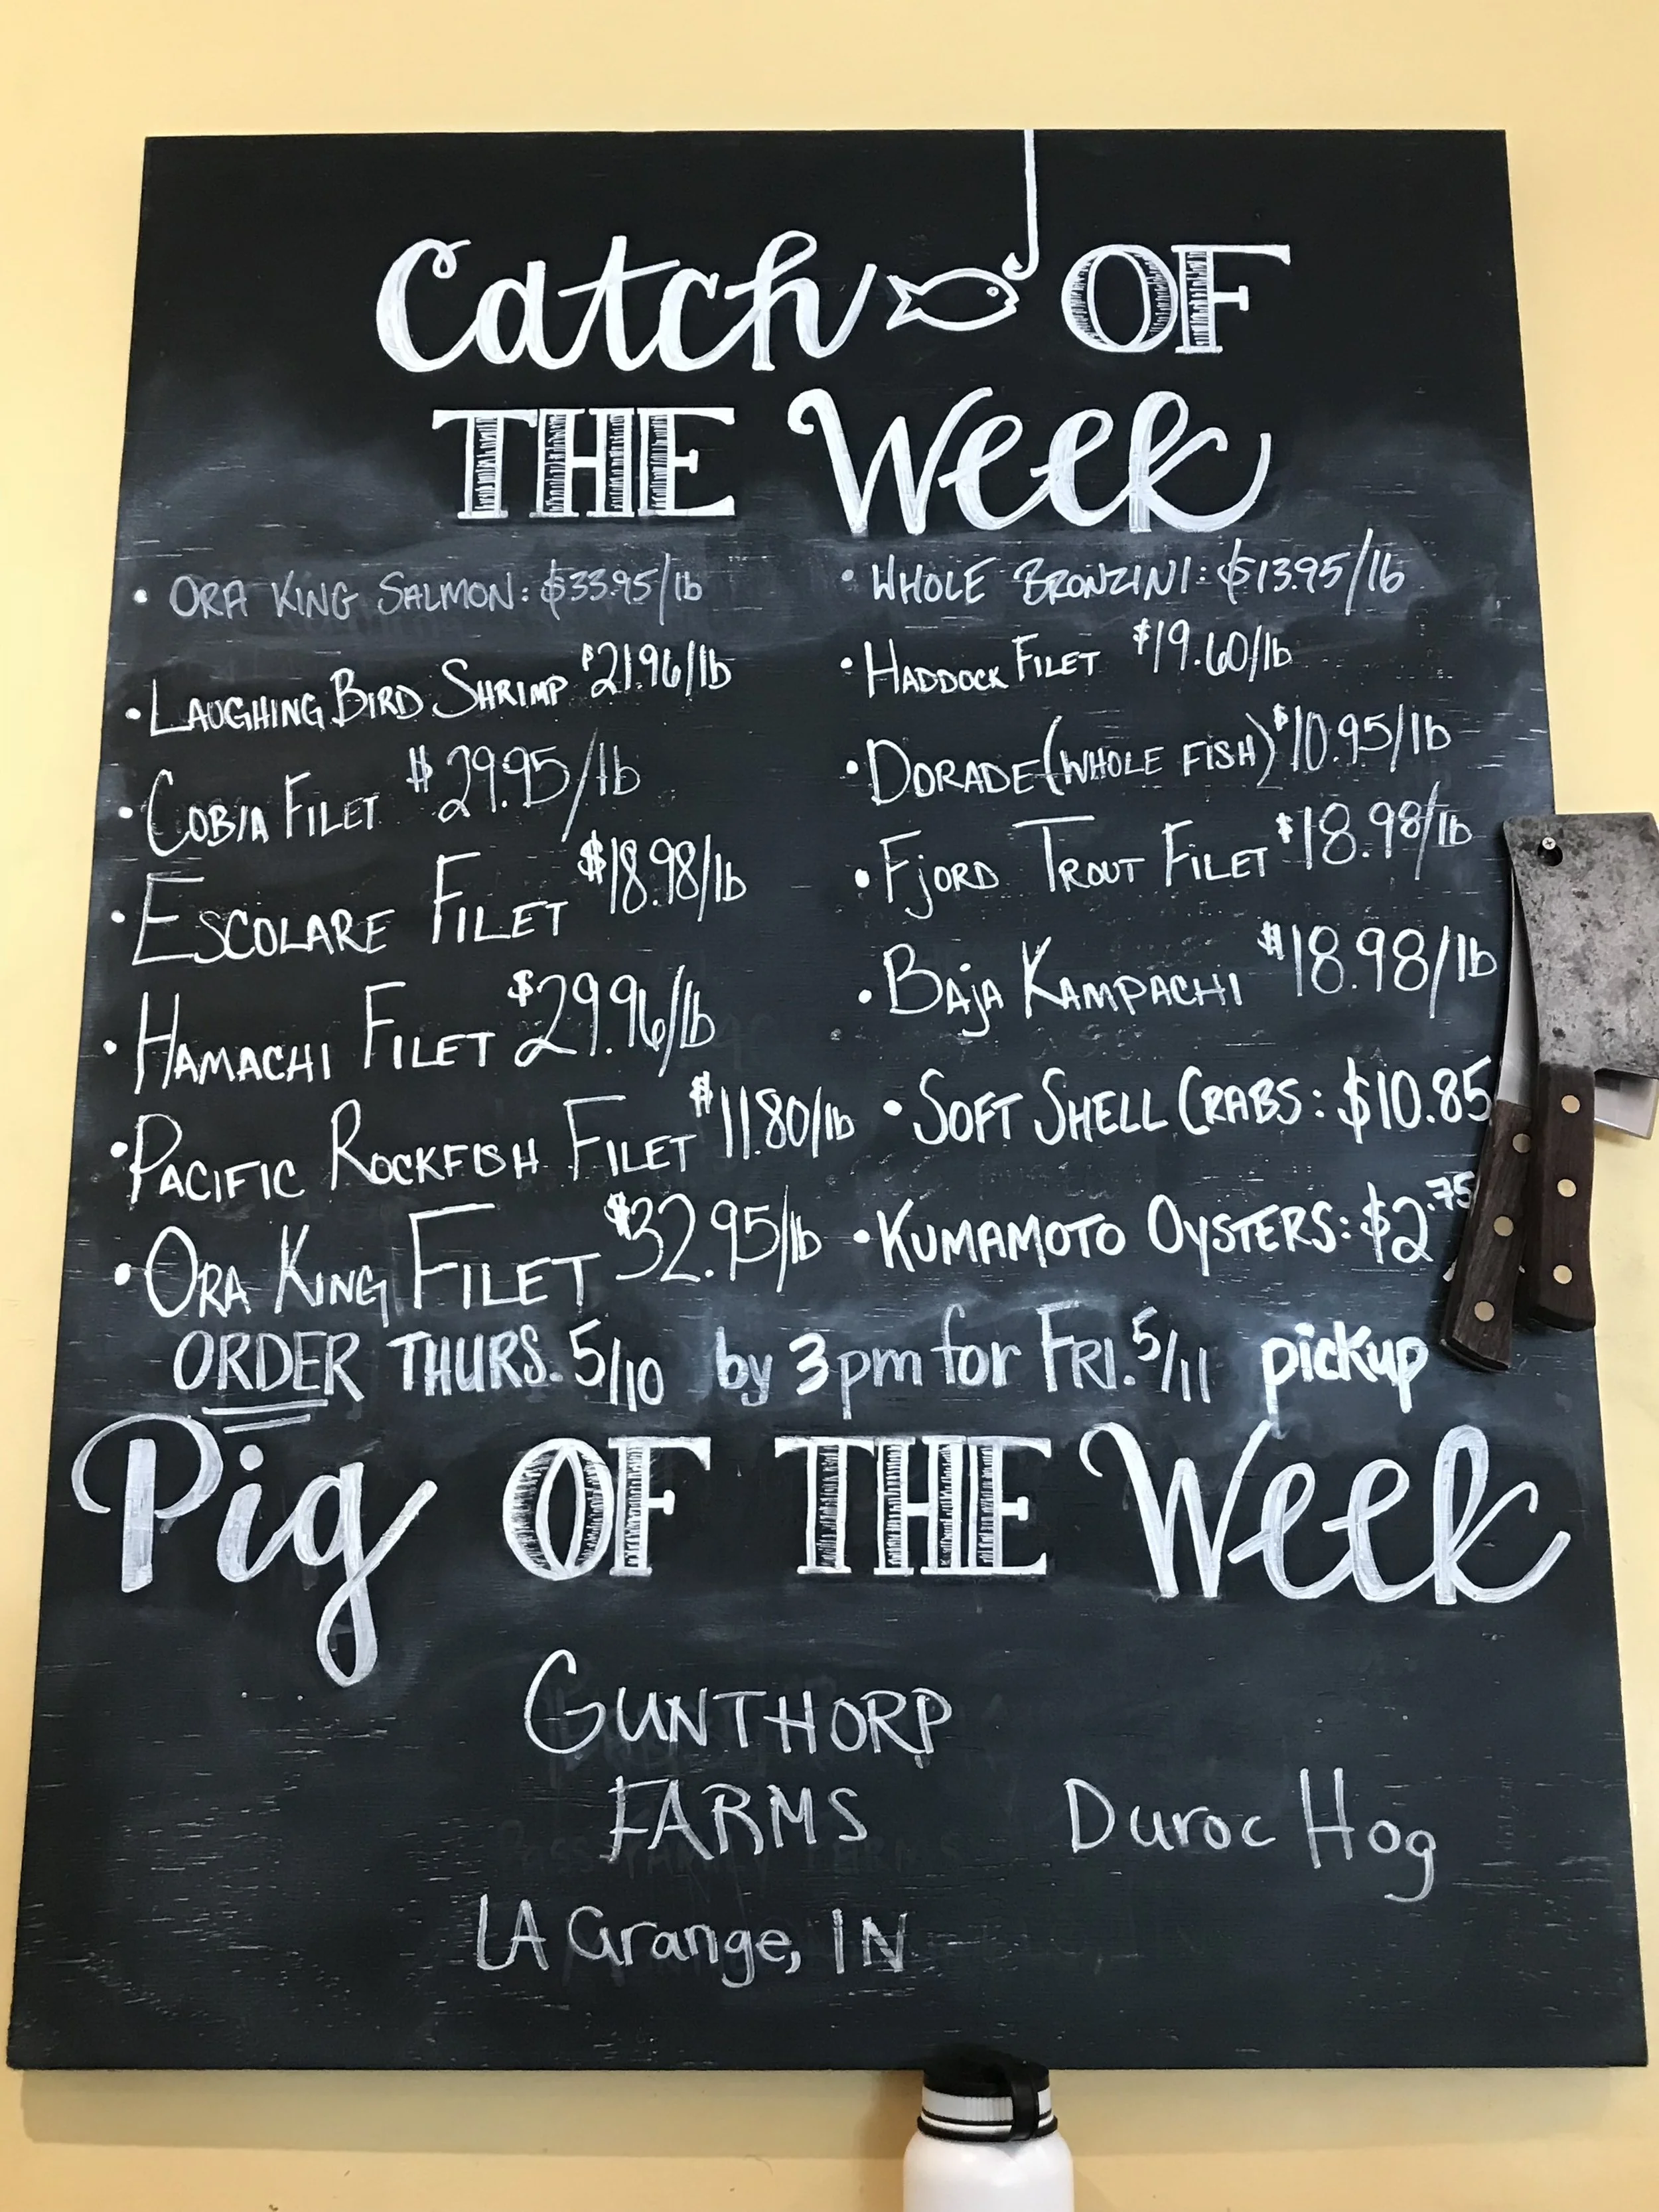 Catch OF
THE Week
• ORA KING SALMON: $33.95/lb
• LAUGHING BIRD SHRIMP $21.96/lb
• COBIA FILET $29.95/lb
• ESCOLARE FILET $18.98/lb
• HAMACHI FILET $29.96/lb
• PACIFIC ROCKFISH FILET $11.80/lb
• ORA KING FILET $32.95/lb
• WHOLE BRONZINI: $13.95/lb
• HADDOCK FILET $19.60/lb
• DORADE (WHOLE FISH) $10.95/lb
• FJORD TROUT FILET $18.98/lb
• BAJA KAMPACHI $18.98/lb
• SOFT SHELL CRABS: $10.85
• KUMAMOTO OYSTERS: $2.75
ORDER THURS. 5/10 by 3pm for FRI. 5/11 pickup
Pig OF THE Week
GUNTHORP
FARMS
LA Grange, IN
Duroc Hog